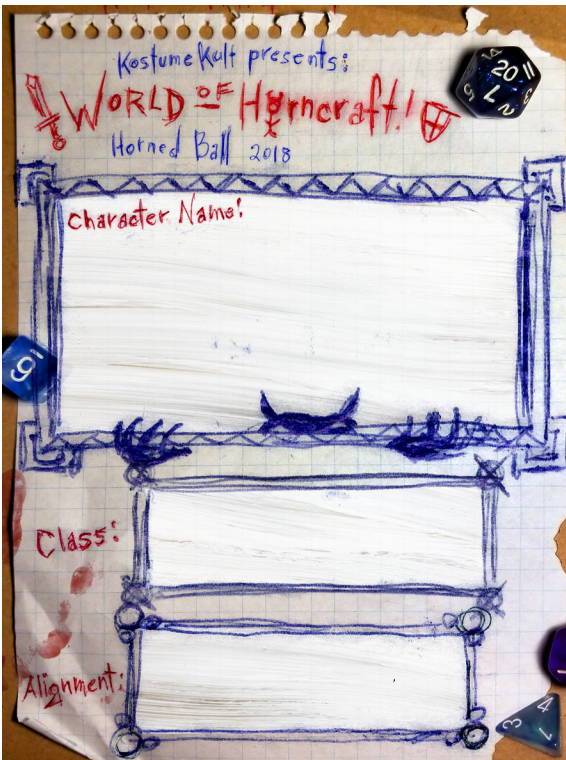 Kostume Kult presents:
WORLD OF Horncraft!
Horned Ball 2018
Character Name:
Class:
Alignment:
20
11
14
1
2
3
5
9
3
4
1